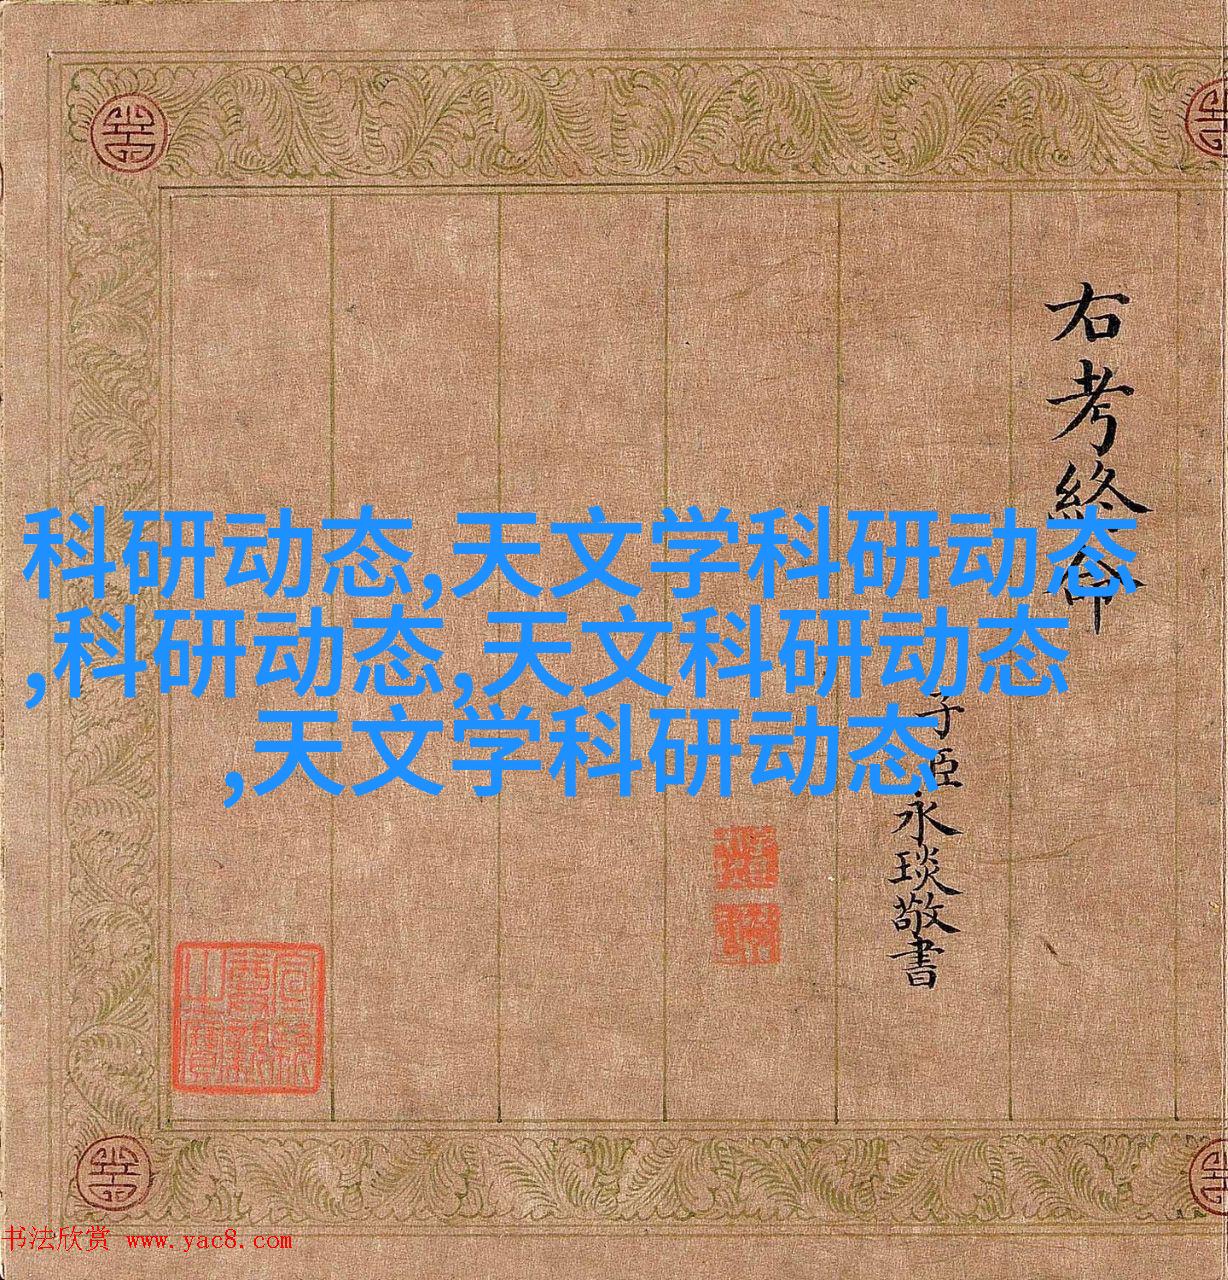 科研动态,天文学科研动态
,科研动态,天文科研动态
,天文学科研动态
右考終命
子臣永琰敬書
书法欣赏 www.yac8.com